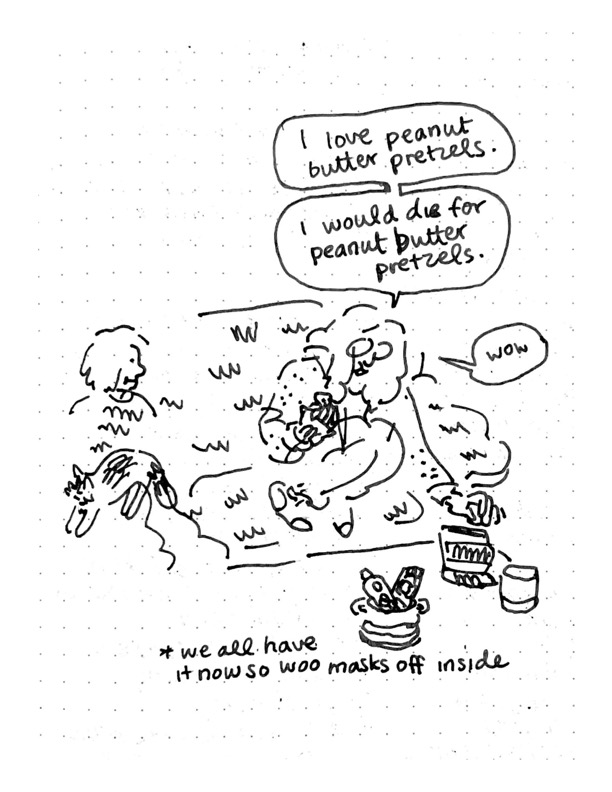 I love peanut
butter pretzels.
I would die for
peanut butter
pretzels.
wow
* we all have
it now so woo masks off inside